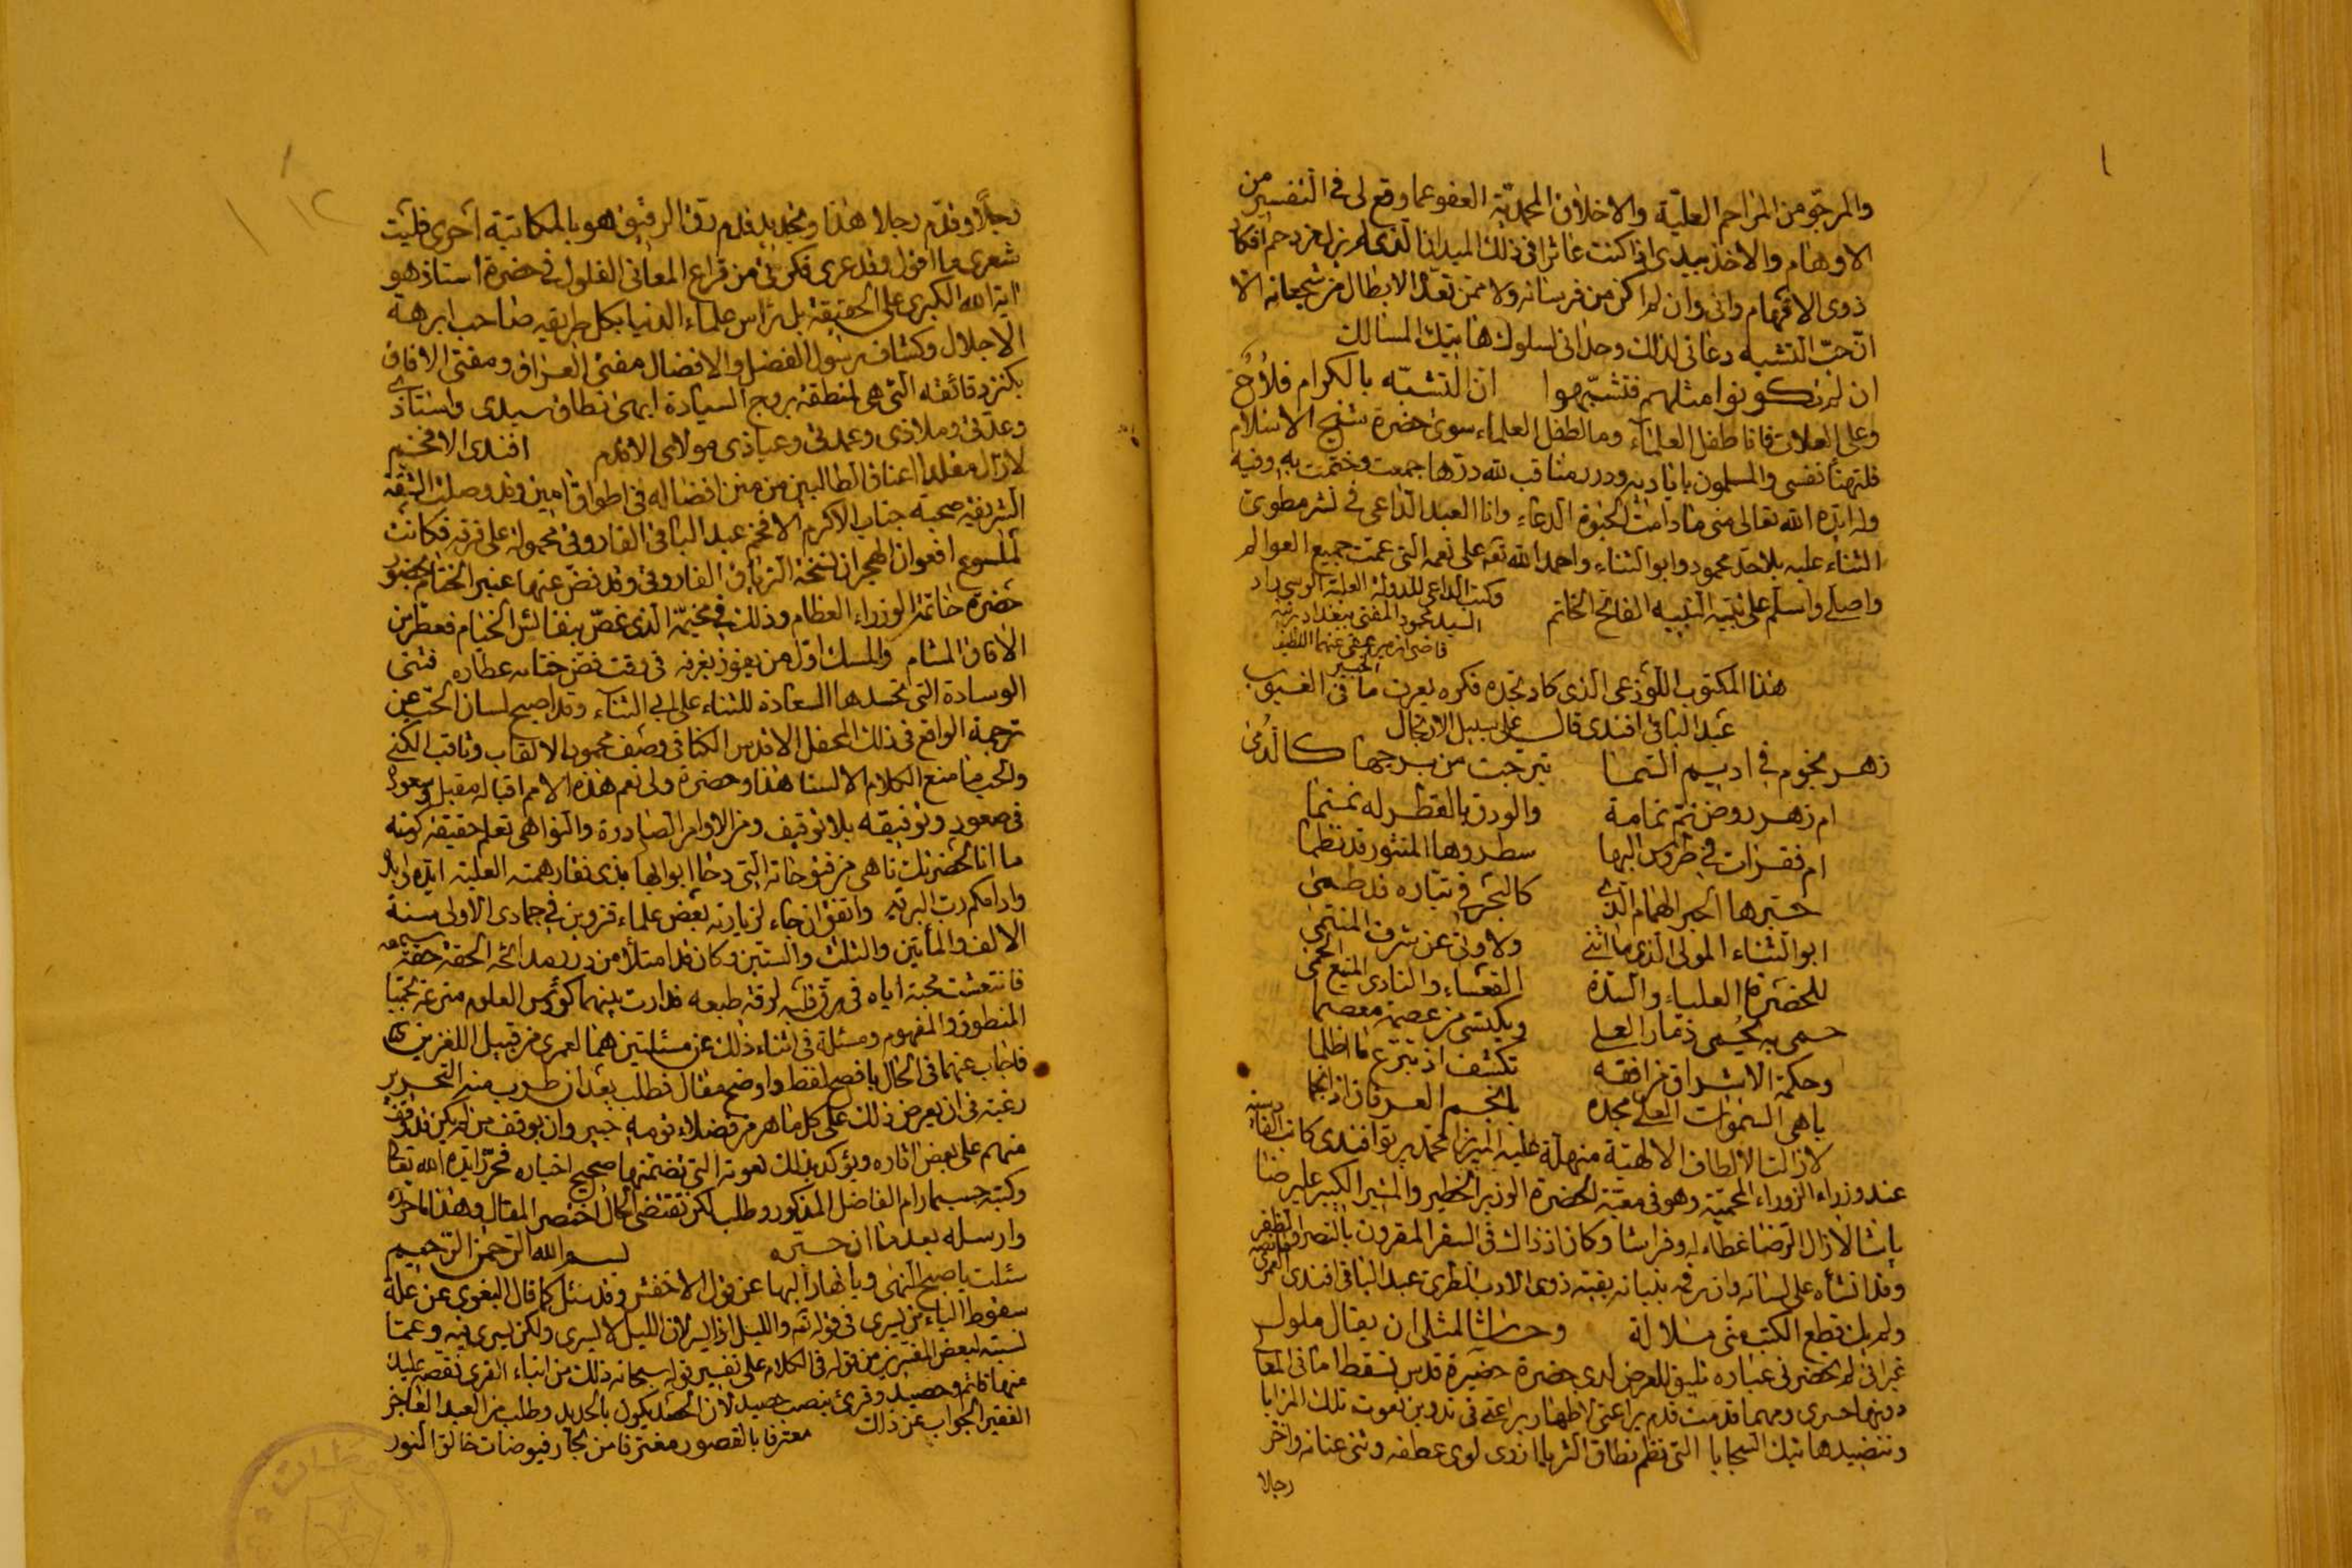 والمرجو من المراحم العلية والاخلاق المحمدية العفو عما وقع لى فى التفسير من
الاوهام والاخذ بيدى اذ كنت عاثرا فى ذلك الميدان الذى لم يزل مزدحم افكار
ذوى الافهام وانى وان لم اكن من فرسانه ولا ممن تعد الابطال من شجعانه الا
ان حب التشبه دعانى لذلك وحدانى لسلوك هاتيك المسالك
ان لم تكونوا مثلهم فتشبهوا ان التشبه بالكرام فلاح
وعلى العلات فانا طفل العلماء وما لطفل العلماء سوى حضرة شيخ الاسلام
فلتهنأ نفسى والمسلمون باياديه ودرر مناقب لله درها جمعت وختمت به وفيه
وله ايده الله تعالى منى ما دامت الدعاء وانا العبد الداعى فى نشر مطوى
الثناء عليه بلا حد محمود وابو الثناء واحمد الله تعه على نعمه التى عمت جميع العوالم
واصلى واسلم على نبيه النبيه الفاتح الخاتم وكتب الداعى للدولة العلية الوسى زاد
السيد محمود المفتى ببغداد
عفى عنهما اللطيف
الخبير
هذا المكتوب اللوذعى الذى كاد بجده فكره يعرف ما فى الغيوب
عبد الباقى افندى قال على سبيل الارتجال
زهر نجوم فى اديم السما تبرجت من برجها كالدمى
ام زهر روض نم نمامة والودق بالقطر له نمنما
ام فقرات فى طروس البها سطروها المنثور قد نظما
حبرها الحبر الهمام الذى كالبحر فى تياره قد طمى
ابو الثناء المولى الذى ما انثنى ولا ونى عن شرف المنتمى
للحضرة العلياء والسدة القعساء والنادى المنيع الحمى
حمى به يحمى ذمار العلى ويكتسى من عصمة معصما
وحكمة الاشراق من افقه تكشف اذ تبزغ ما اظلما
باهى السموات العلى مجده بانجم العرفان اذ انجما
لا زالت الالطاف الالهية منهلة عليه الميرزا محمد افندى كاتب
عند وزراء الزوراء المحمية وهو فى معية الحضرة الوزير الخطير والمشير الكبير على رضا
باشا لا زال الرضا غطاء له وفراشا وكان اذ ذاك فى السفر المقرون بالنصر والظفر
وقد انشأه على لسانه وان رقمه ببنانه بقية ذوى الادب الطرى عبد الباقى افندى العمرى
ولم يك قطع الكتب منى ملالة وحاشا لمثلى ان يقال ملول
غير انى لم يحضرنى عباره تليق للعرض لدى حضرة حضيرة قدس تسقط امانى المعالى
دونها حسرى ومهما قدمت قدم يراعتى لاظهار براعتى فى تدوين نعوت تلك المزايا
وتنضيد هاتيك السجايا التى نظم نطاق الثريا انزوى لوى عطفه وثنى عنانه واخر
رجلا
رجلا وقدم رجلا هذا وتجديد قدم رق الرقيق هو بالمكاتبة احرى فليت
شعرى ما اقول وقد عرى فكرتى من قراع المعانى الفلول فى حضرة استاذ هو
اية الله الكبرى على الحقيقة بل نبراس علماء الدنيا بكل طريقه صاحب ابرهة
الاجلال وكشاف سول الفضل والافضال مفتى العراق ومفتى الافاق
بكنز دقائقه التى هى منطقة بروج السيادة ابهى نطاق سيدى واستاذى
وعدتى وملاذى وعمدتى وعياذى مولاى الاقدم افندى الافخم
لا زال مقلدا اعناق الطالبين من منن افضاله فى اطواق امين وقد وصلت النميقة
الشريفة صحبة جناب الاكرم الافخم عبد الباقى الفاروقى محمولة على فكانت
لملسوع افعوان الهجران نسخة الترياق الفاروقى وقد فض عنها عنبر الختام بحضور
حضرة خاتمة الوزراء العظام وذلك فى مخيمه الذى غص بنفائس الخيام فعطر من
الافاق المشام والمسك اول من يفوز بعرفه فى وقت فض ختامه عطاره فثنى
الوسادة التى تحسدها السعادة للثناء على ابى الثناء وقد اصبح لسان المحب عن
ترجمة الواقع فى ذلك المحفل الاقدس الكنا فى وصف محمود الالقاب وثاقب الكنى
والحب ما منع الكلام الالسنا هذا وحضرة ولى نعم هذه الامم اقباله مقبل وسعوده
فى صعود وتوفيقه بلا توقيف ومن الاوامر الصادرة والنواهى تعلم حقيقة كونه
ما انا لحضرتك ناهى من فتوحاته التى دحا ابوابها بذى فقار همته العلية ايده
وادامكم رب البريه واتفق ان جاء لزيارته بعض علماء قزوين فى جمادى الاولى سنة
الالف والمأتين والثلث والستين وكان قد امتلأ من درر مدائحه الحقة حقة سمعه
فانتعشت محبة اياه فى رق قلبه لرقة طبعه فدارت بينهما كؤس العلوم مترعة بحميا
المنطوق والمفهوم وسئلة فى اثناء ذلك عن مسئلتين هما لعمرى من قبيل اللغزين
فاجاب عنهما فى الحال بافصح لفظ واوضح مقال فطلب بعد ان طرب منه التحرير
رغبة فى ان يعرض ذلك على كل ماهر من فضلاء قومه خبير وان يوقف من لم يكن قد وقف
منهم على بعض اثاره ويؤكد بذلك نعوته التى تضمنها صحيح اخباره فحرر ايده الله تعالى
وكتبه حسبما رام الفاضل المذكور وطلب لكن تقتضى الحال اختصر المقال وهذا ما حرره
وارسله بعد ما ان حبره بسم الله الرحمن الرحيم
سئلت يا صبح النهى ويا نهار البها عن قول الاخفش وقد سئل كما قال البغوى عن علة
سقوط الياء من يسرى فى قوله تعه والليل اذا يسر لان الليل لا يسرى ولكن يسرى فيه وعما
نسبته لبعض المفسرين من قوله فى الكلام على تفسير قوله سبحانه ذلك من انباء القرى نقصه عليك
منها قائم وحصيد وقرئ بنصب حصيد لان الحصد يكون بالحديد وطلب من العبد العاجز
الفقير الجواب عن ذلك معترفا بالقصور مغترفا من بحار فيوضات خالق النور